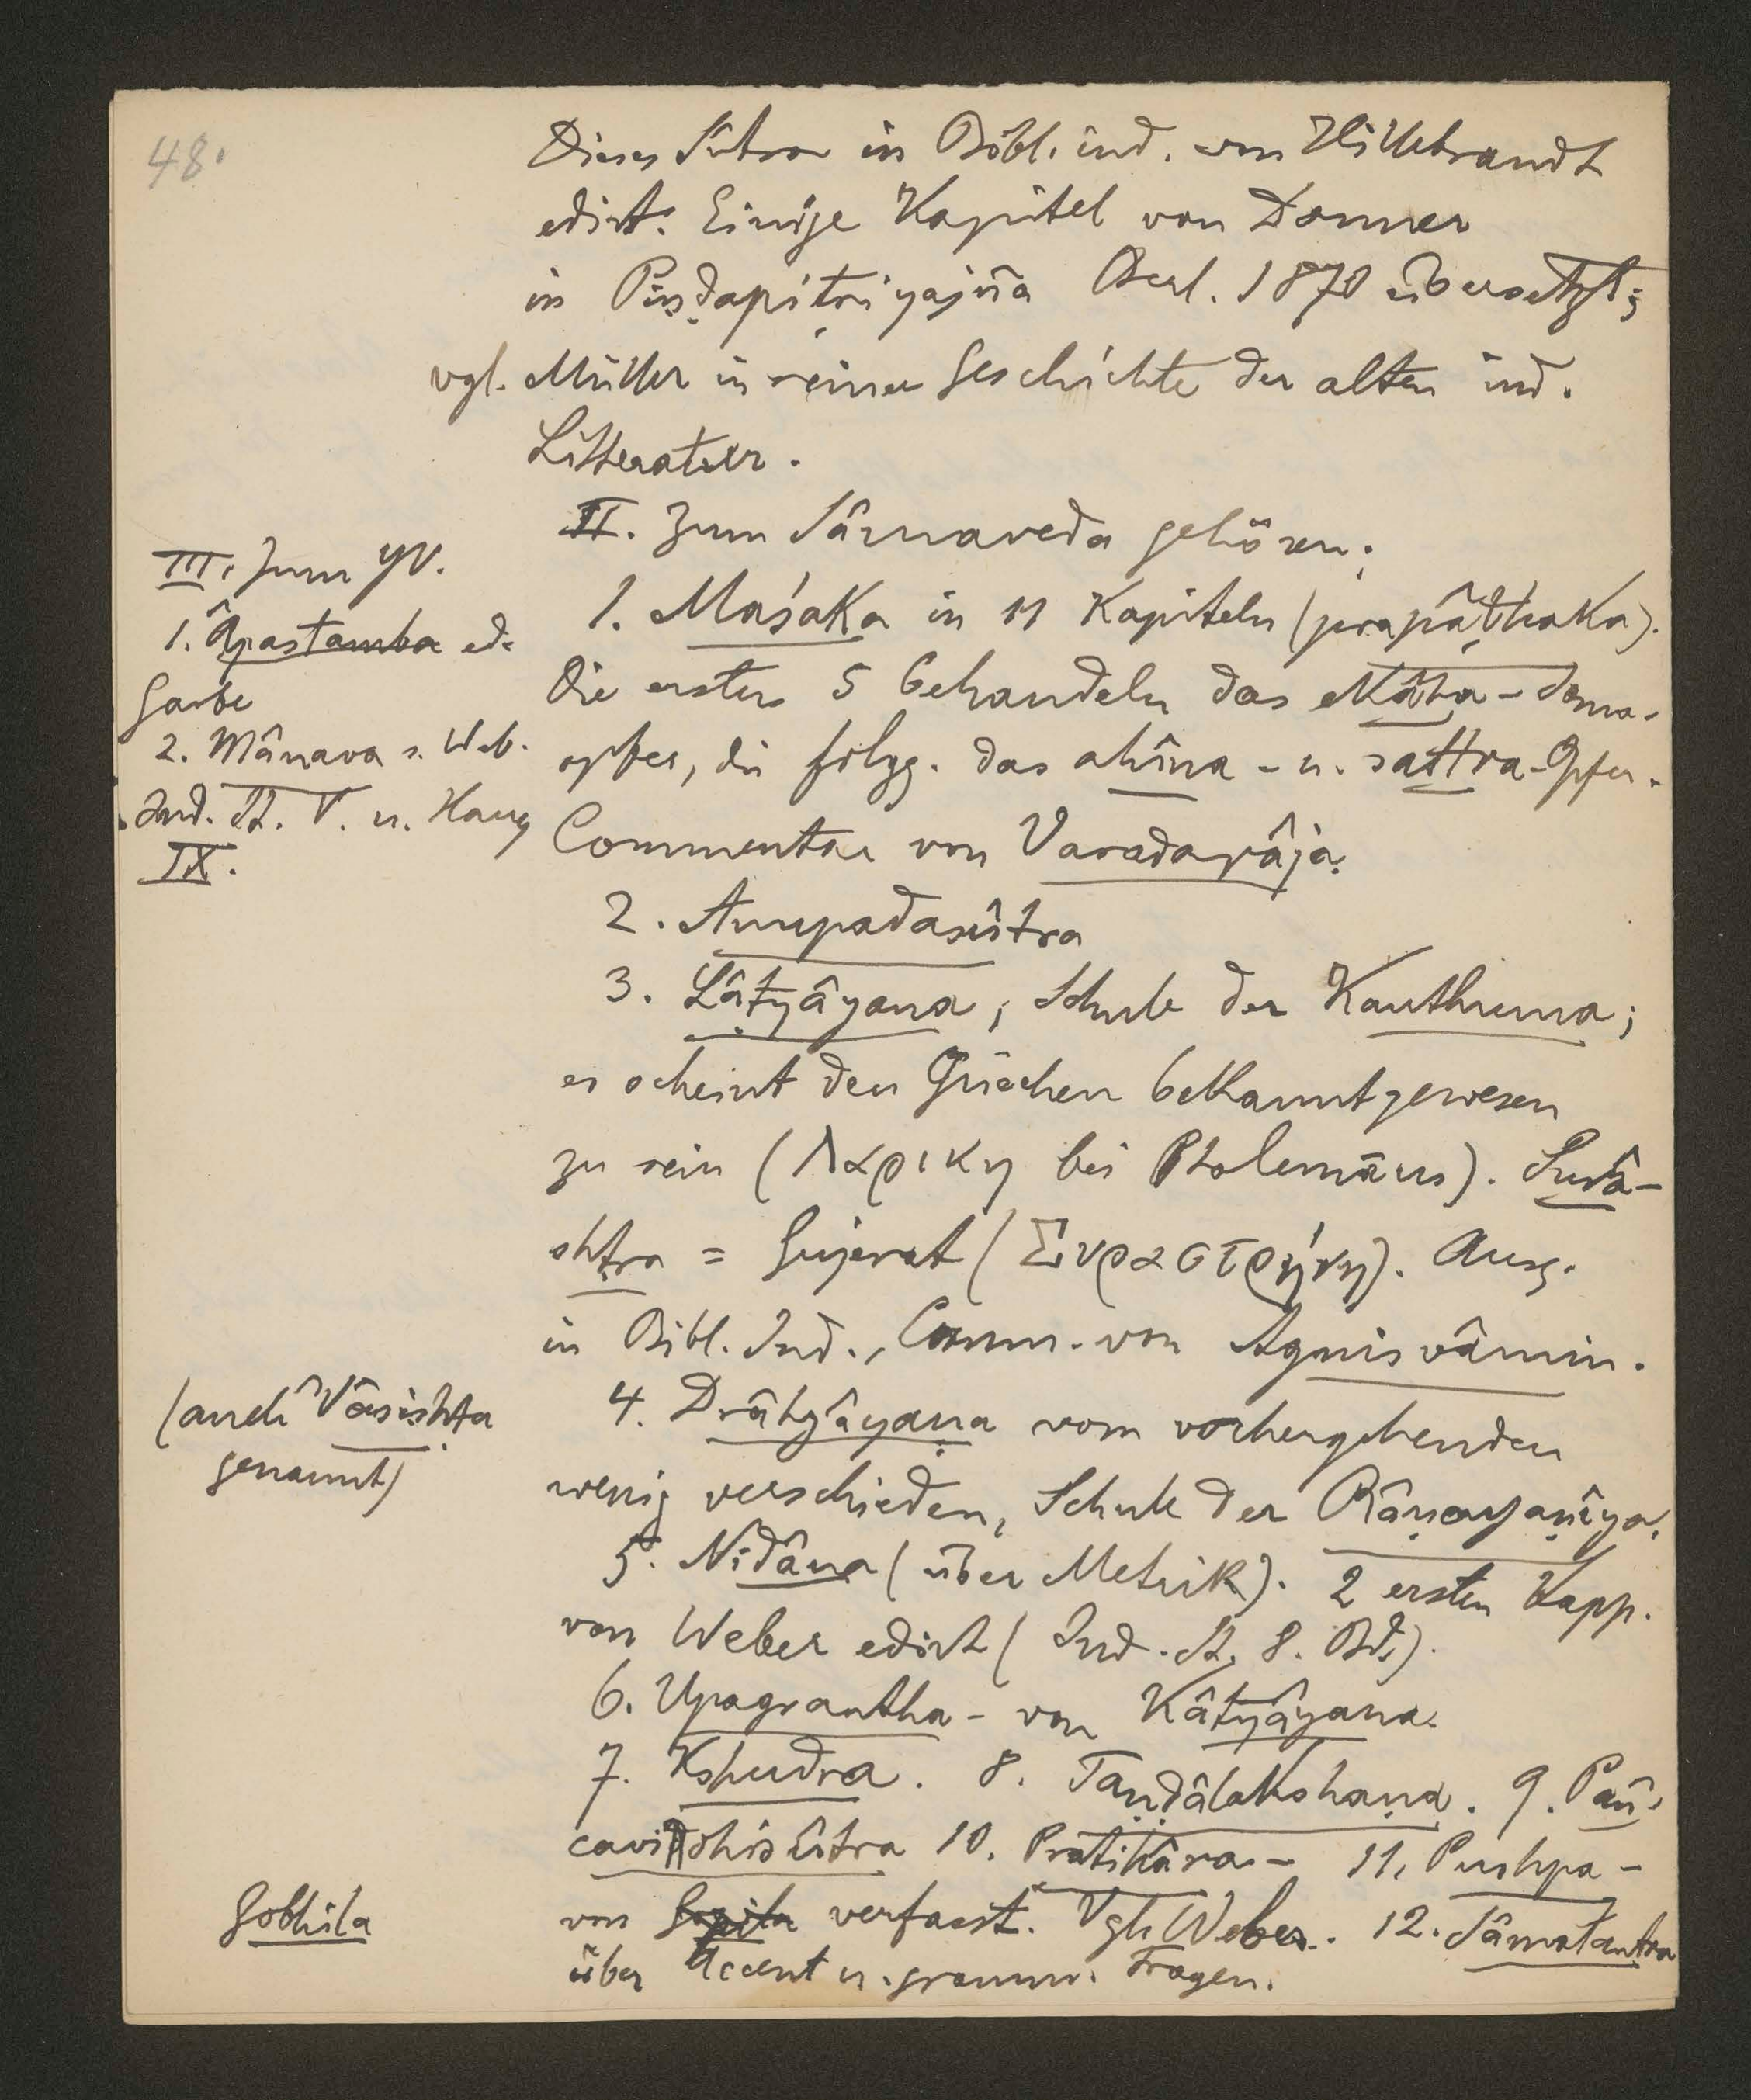 48.
Dieses Sûtra in Bibl. ind. von Hillebrandt
edirt. Einige Kapitel von Donner
in Piṇḍapitṛiyajña Berl. 1870 übersetzt;
vgl. Müller in seiner Geschichte der alten ind.
Litteratur.
II. Zum Sâmaveda gehören:
1. Maśaka in 11 Kapiteln (prapâṭhaka).
Die ersten 5 behandeln das ekâha-Soma-
opfer, die folgg. das ahîna- u. sattra-Opfer.
Commentar von Varadarâja.
2. Anupadasûtra
3. Lâṭyâyana, Schule der Kauthuma;
er scheint den Griechen bekannt gewesen
zu sein (Λαρικη bei Ptolemäus). Surâ-
shṭra = Gujerat (Συραστρήνη). Ausg.
in Bibl. Ind., Comm. von Agnisvâmin.
4. Drâhyâyaṇa vom vorhergehenden
wenig verschieden, Schule der Râṇayaṇîya.
5. Nidâna (über Metrik). 2 ersten Kapp.
von Weber edirt (Ind. St. 8. Bd.).
6. Upagrantha- von Kâtyâyana.
7. Kshudra. 8. Taṇḍâlakshaṇa. 9. Pañ-
cavidhisûtra 10. Pratihâra- 11. Pushpa-
von verfasst. Vgl. Weber. 12. Sâmatantra
über Accent u. gramm. Fragen.
III. Zum YV.
1. Âpastamba ed.
Garbe
2. Mânava s. Web.
Ind. St. V. u. Haug
IX.
(auch Vâsishṭa
genannt)
Gobhila